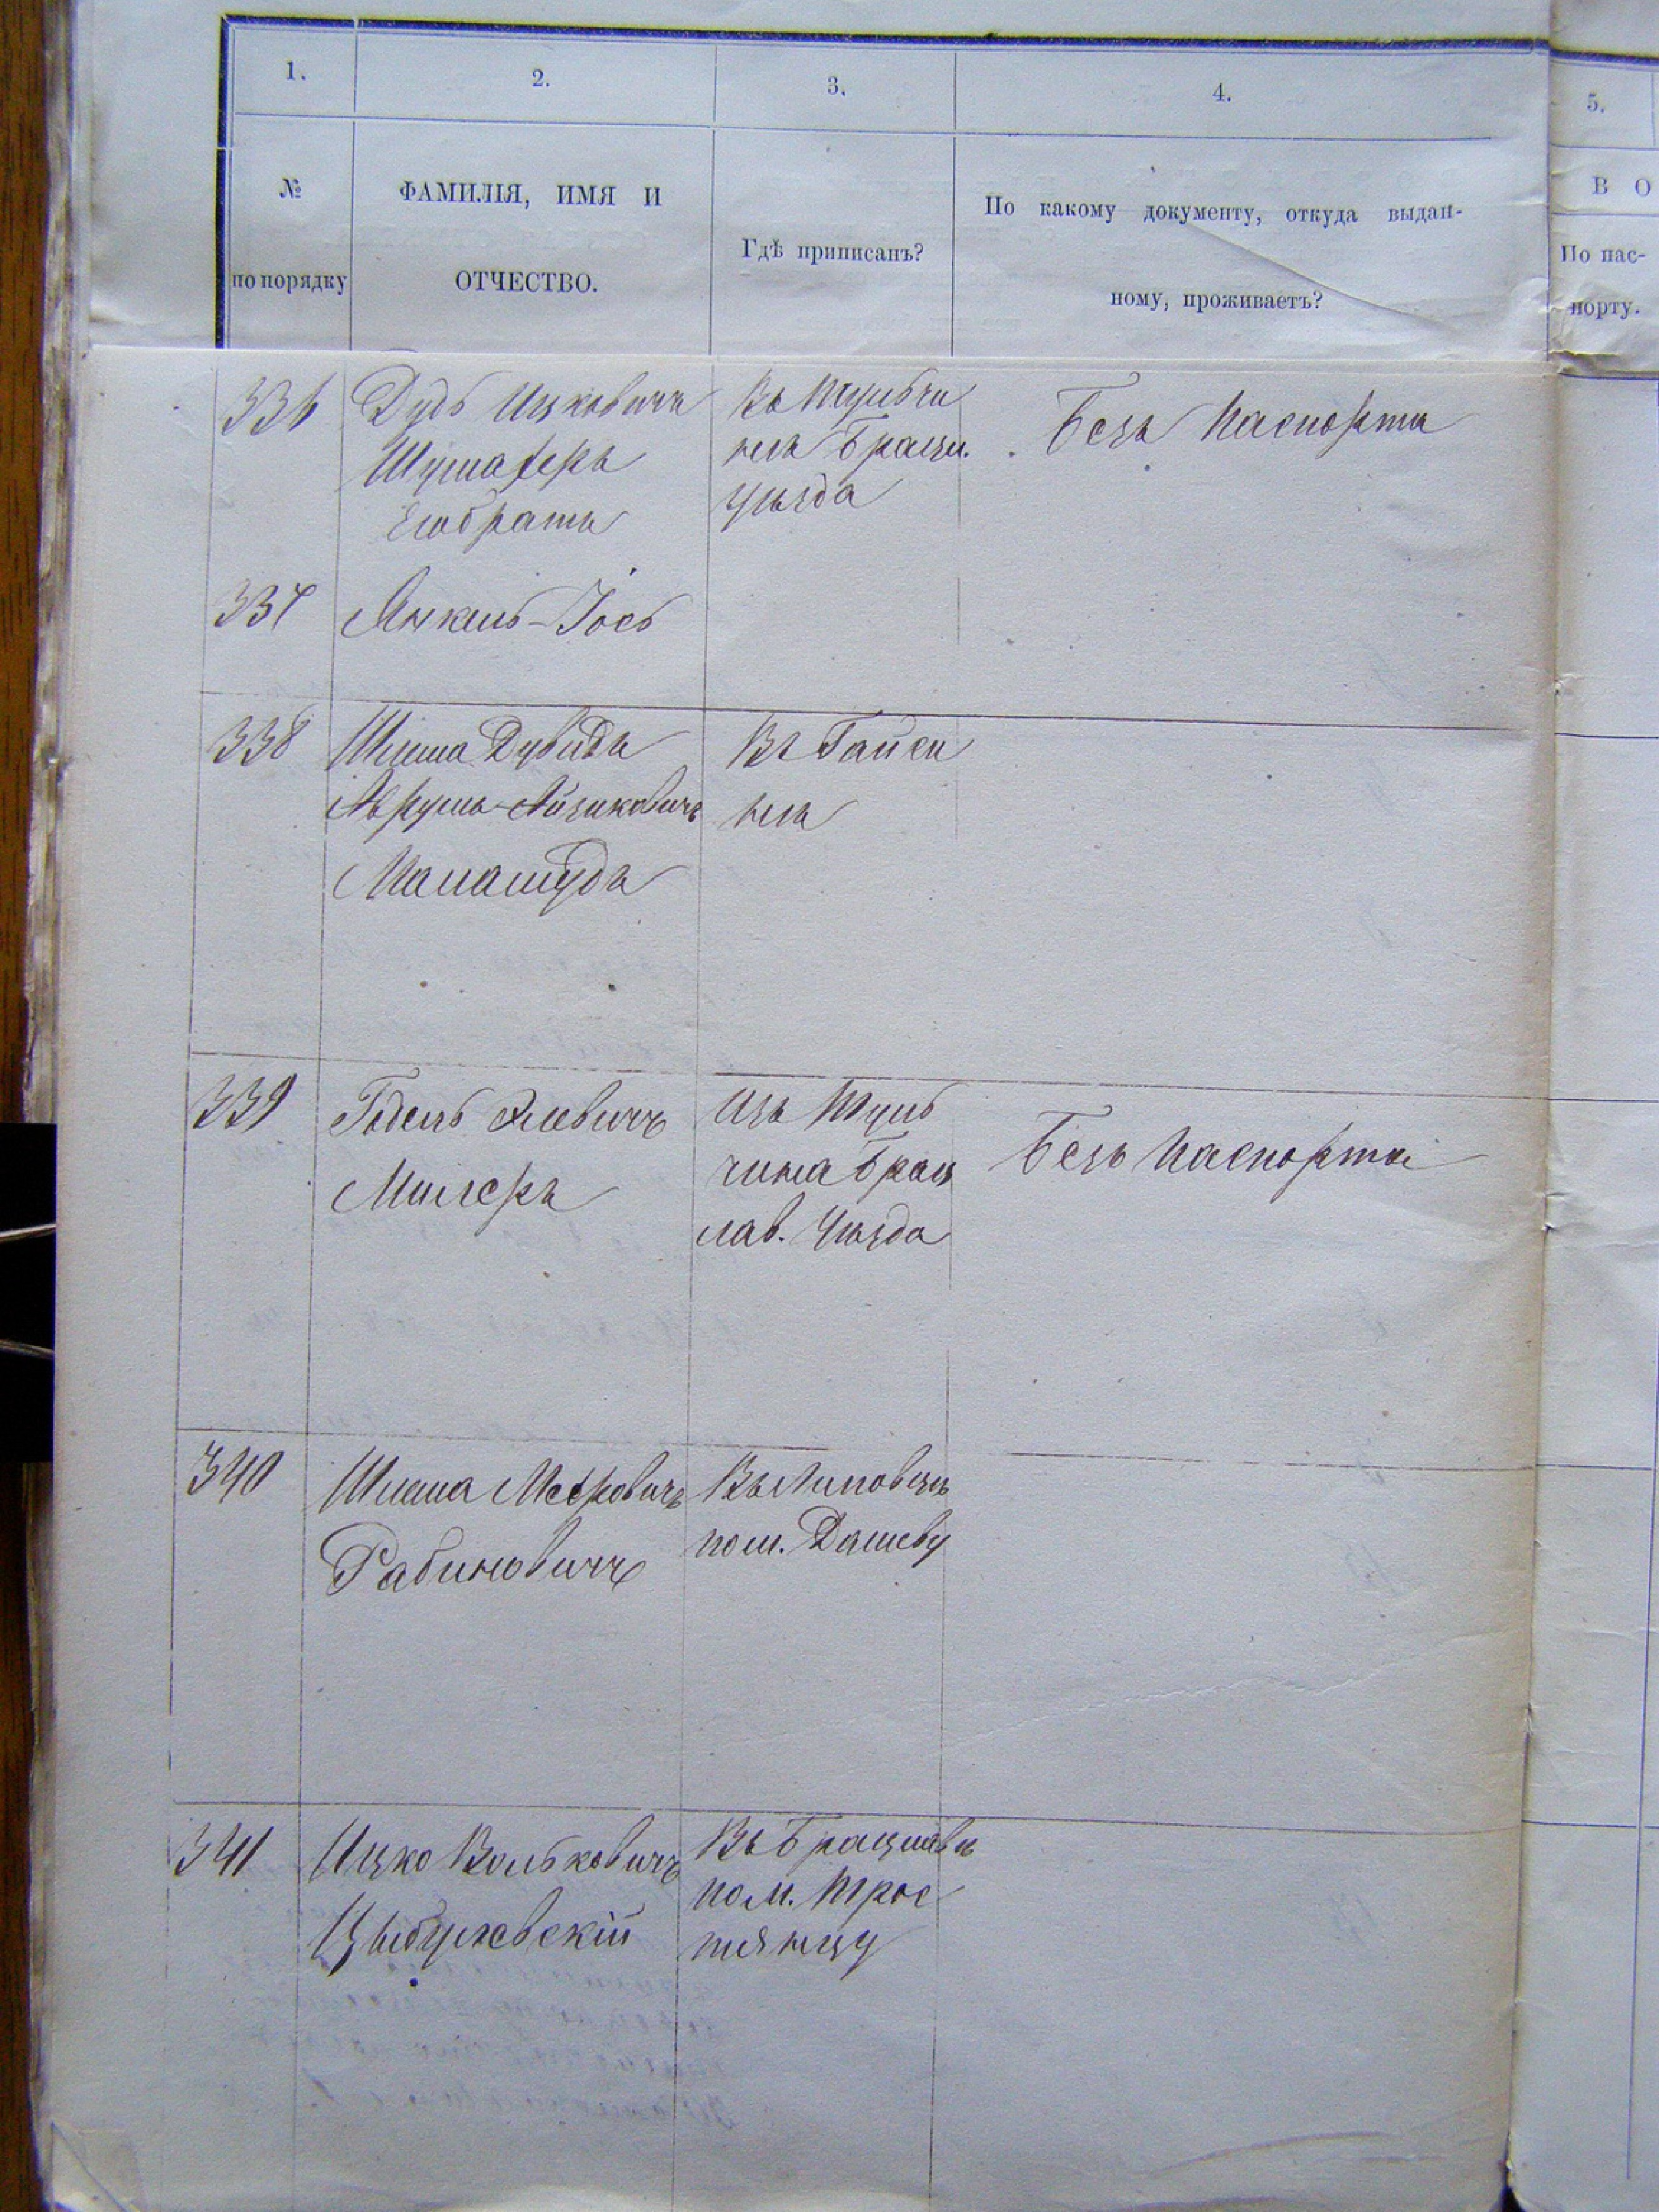 1.
2.
3.
4.
5.
№
по порядку
ФАМИЛІЯ, ИМЯ И
ОТЧЕСТВО.
Гдѣ приписанъ?
По какому документу, откуда выдан-
ному, проживаетъ?
В О
По пас-
порту.
336
Дудь Ицковичъ
Шумахеръ
Его братъ
Въ Тульчи
нѣ Брацл.
уѣзда
Безъ паспорта
337
Янкель-Іось
338
Шлема Дувидъ
Аврумъ-Айзиковичъ
Въ Гайси
нѣ
339
Годель
Милеръ
Изъ Туль
чина Брац
лав. уѣзда
Безъ паспорта
340
Шлема Мееровичъ
Рабиновичъ
Въ Липовецъ
по м. Дашеву
341
Ицко Вольковичъ
Цыбулевскій
Въ Брацлавѣ
по м. Трос
тянцу